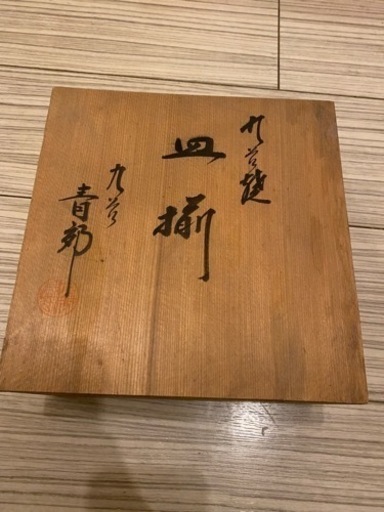 九谷焼
皿揃
九谷
青郊